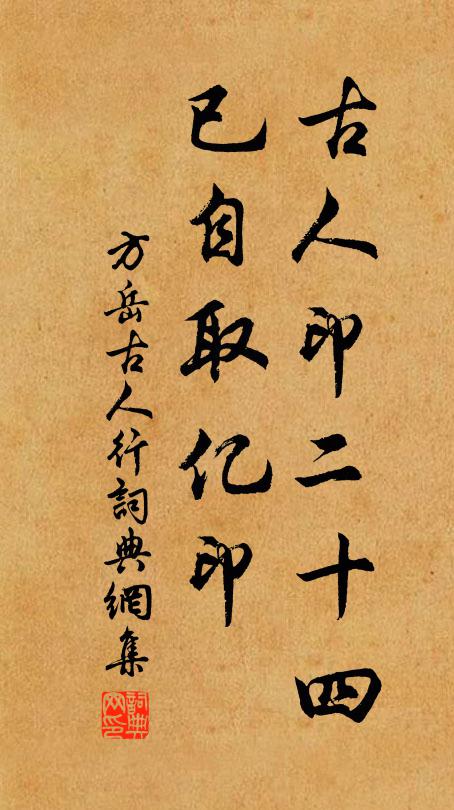 古人印二十四
已自取亿印
方岳古人行詞典網集
詞典
网印